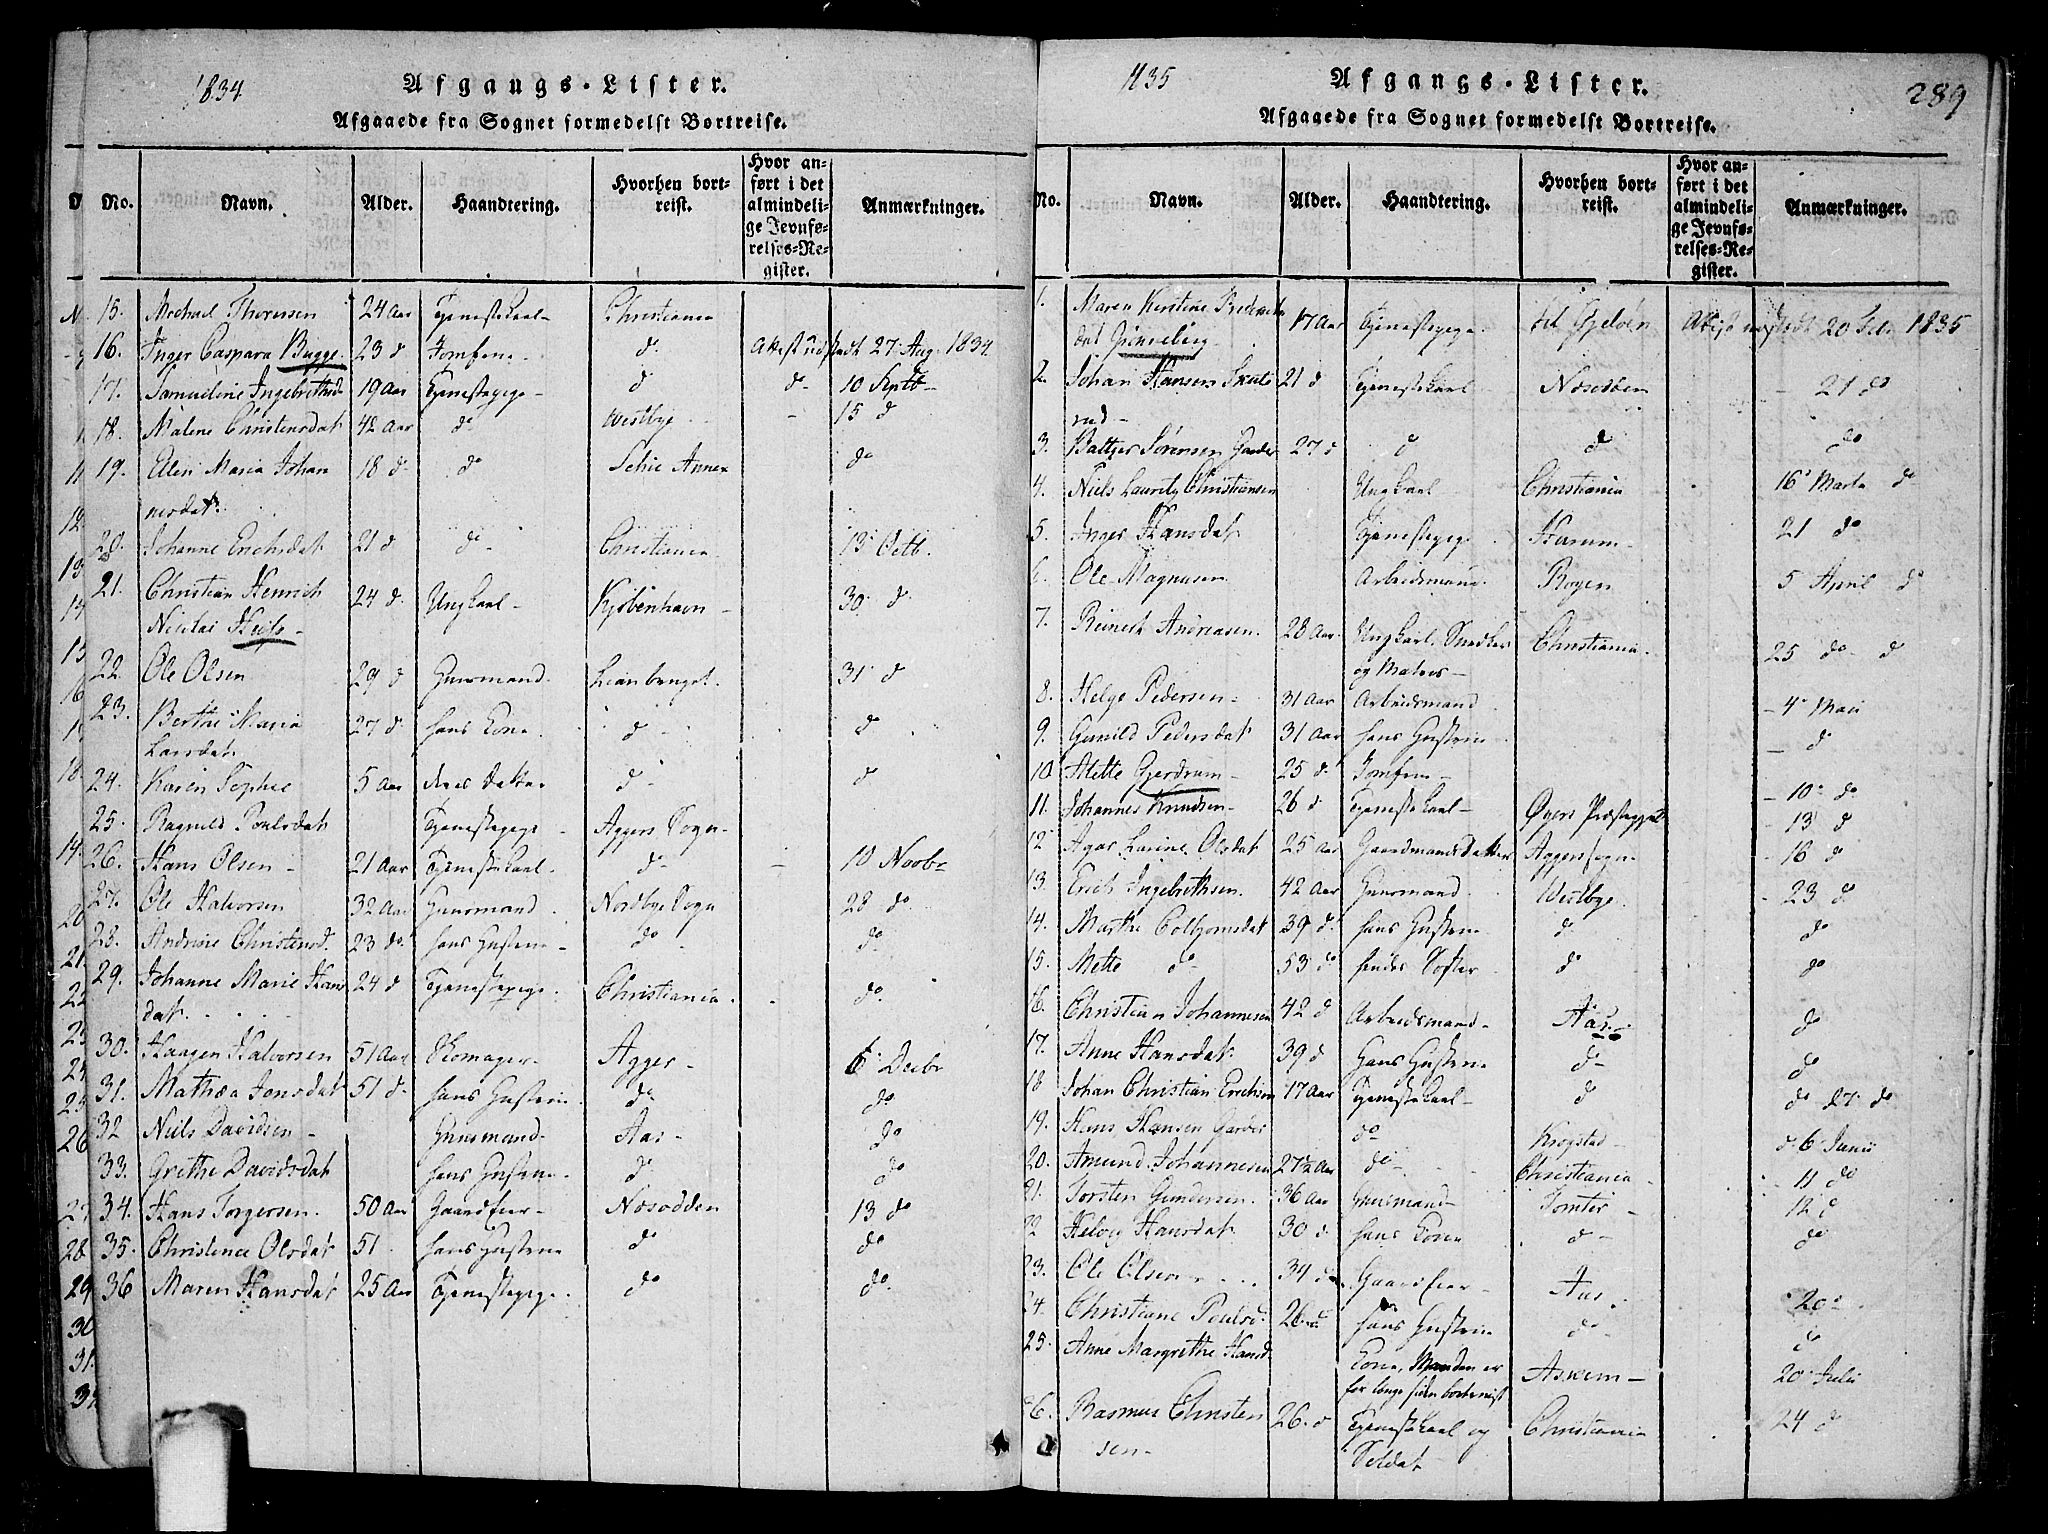 1834
Afgangs-Lister.
Afgaaede fra Sognet formedelst Bortreise.
No. Navn. Alder. Haandtering. Hvorhen bortreist. Hvor anført i det almindelige Jevnførelses-Register. Anmærkninger.
15. Michael Thoresen 24 Aar Tjenestekarl Christiania
16. Inger Caspara Bugge 23 d Jomfrue d. Attest udstædt 27 Aug. 1834
17. Samueline Ingebrethsd 19 Aar Tjenestepige d d 10 Septb
18. Malene Christensdat 42 Aar do Westbye 15 d
19. Elen Maria Johan 18 d do Schie Annex do
nesdat.
20. Johanne Erichsdat 21 d do Christiania 13 Octb.
21. Christian Henrich 24 d. Ungkarl Kjøbenhavn 30 d
Nicolai
22. Ole Olsen 29 d Huusmand 31 d
23. Berthe Maria 27 d hans Kone d do
Larsdat
24. Karen Sophie 5 Aar deres Datter d d
25. Ragnild Poulsdat Tjenestepige Aggers Sogn
26. Hans Olsen 21 Aar Tjenestekarl do 10 Novbr
27. Ole Halvorsen 32 Aar Huusmand Nordbye Sogn 28 do
28. Andrine Christensd. 23 do hans Hustrue do do
29. Johanne Marie Hans 24 d Tjenestepige Christiania do
dat.
30. Haagen Halvorsen 51 Aar Skomager Agger 6 Decbr
31. Mathea Jonsdat 51 d. hans Hustrue do do
32 Niels Davidsen Huusmand Aas do
33. Grethe Davidsdat hans Hustrue d do
34. Hans Torgersen 50 Aar Gaardeier Nesodden 13 do
35. Christence Olsdat 51 hans Hustrue do do
36 Maren Hansdat 25 Aar Tjenestepige do do
1835
Afgangs-Lister.
289
Afgaaede fra Sognet formedelst Bortreise.
No. Navn. Alder. Haandtering. Hvorhen bortreist. Hvor anført i det almindelige Jevnførelses-Register. Anmærkninger.
1. Maren Kirstine 17 Aar Tjenestepige til Attest udstædt 20 Febr 1835
dat
2. Johan Hansen 21 d Tjenestekarl Nesodden 21 do
rud
3. Sørensen 27 d d d do
4. Niels Lauritz Christiansen Ungkarl Christiania 16 Marts do
5. Inger Hansdat Tjenestepige 21 do
6. Ole Magnusen Arbeidsmand Røgen 5 April d
7. Andreasen 28 Aar Ungkarl, Snedker Christiania 25 do d
og
8. Helge Pedersen 31 Aar Arbeidsmand 4 Mai
9. Gunild Pedersdat 31 Aar hans Hustrue d
10. Mette Gjerdrum 25 d. Jomfrue 10 do
11. Johannes Knudsen 26 d Tjenestekarl Øyers Præstegjeld 13 d
12 Larine Olsdat 25 Aar Gaardmands Datter Aggersogn 16 d
13. Erich Ingebrethsen 42 Aar Huusmand Westbye 23 do
14. Marthe Colbjørnsdat 39 d. hans Hustrue d do
15. Mette do 53 do hendes Søster d do
16. Christian Johannesen 42 d Arbeidsmand Aas do
17. Anne Hansdat 39 d hans Hustrue d do
18 Johan Christian Erichsen 17 Aar Tjenestekarl d do 27 do
19. Hans Hansen do Krogstad d 6 Junii
20. Amund Johannesen 27½ Aar do Christiania 11 do
21. Torsten Gundersen 36 Aar Huusmand Tomter 12 d
22 Helvig Hansdat 30 d hans Kone d do
23. Ole Olsen 34 do Gaardeier Aas 20
24. Christiane Poulsd. 26 d hans Hustrue do d
25. Anne Margrethe Hansd Kone, Manden er Askem 20 Julii
for længe siden bortreist
26. Rasmus Christen 26 d Tjenestekarl og Christiania 24 d
sen Soldat